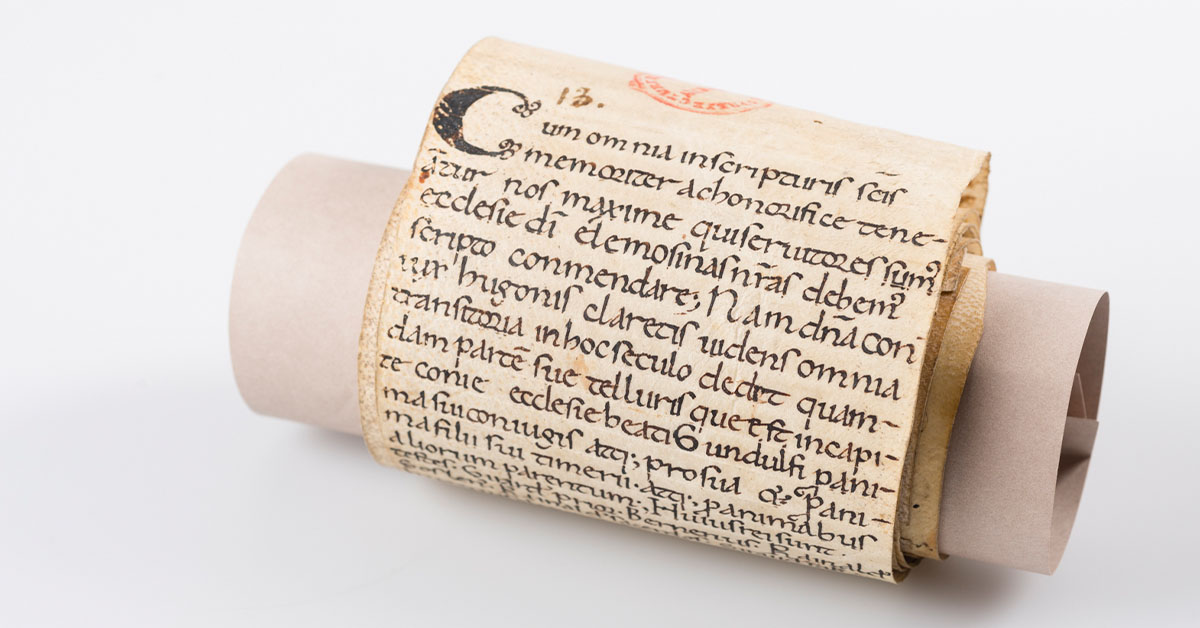 13.
Cum omnia inscripturis scis
memoriter ac honorifice tene-
ātur nos maxime qui seruitores sumꝰ
ecclesie dī elemosinas nr̄as debemꝰ
scripto conmendare; Nam dn̄a con
iux hugonis claretis uidens omnia
transitoria in hoc seculo dedit quan-
dam partē sue telluris que est incapi-
te comie ecclesie beati Gundulfi pani-
ma sui coniugis atq; pro sua & pani-
ma filii sui timerii. atq; panimabus
aliorum parentum. Huius rei sunt